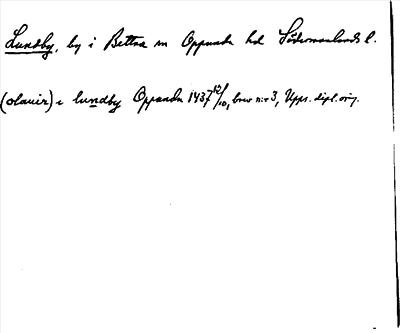 Lundby, by i Bettna sn Oppunda hd Södermanlands l.
(olauir) i lundby Oppunda 1437 12/10, brev n:r 3, Upps. dipl. orig.